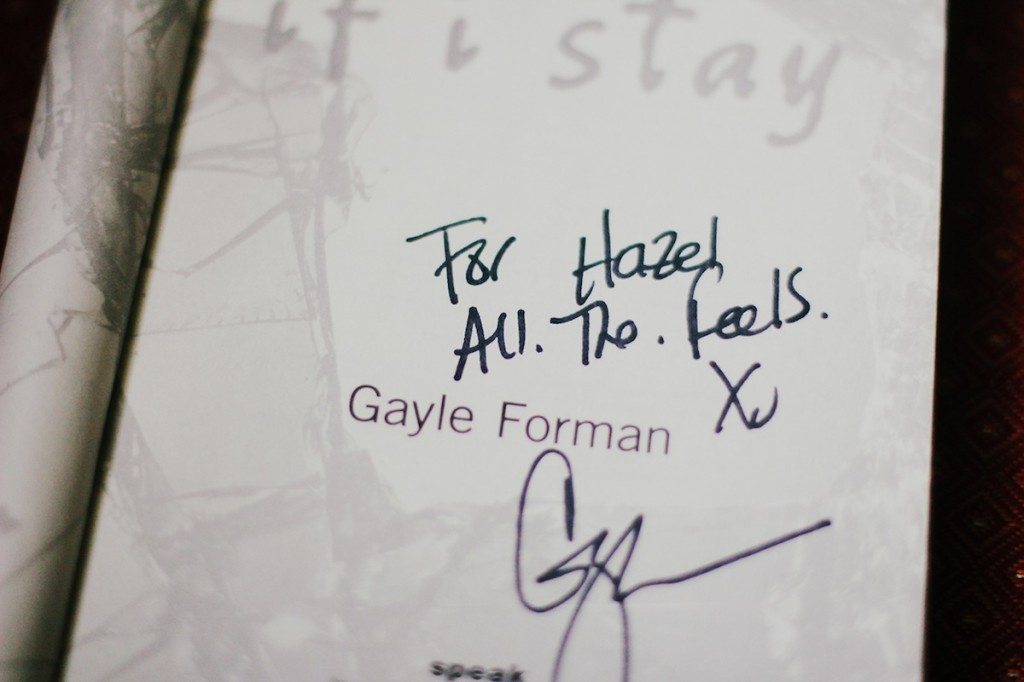 if i stay
For Hazel
All. The. Feels.
X
Gayle Forman
speak